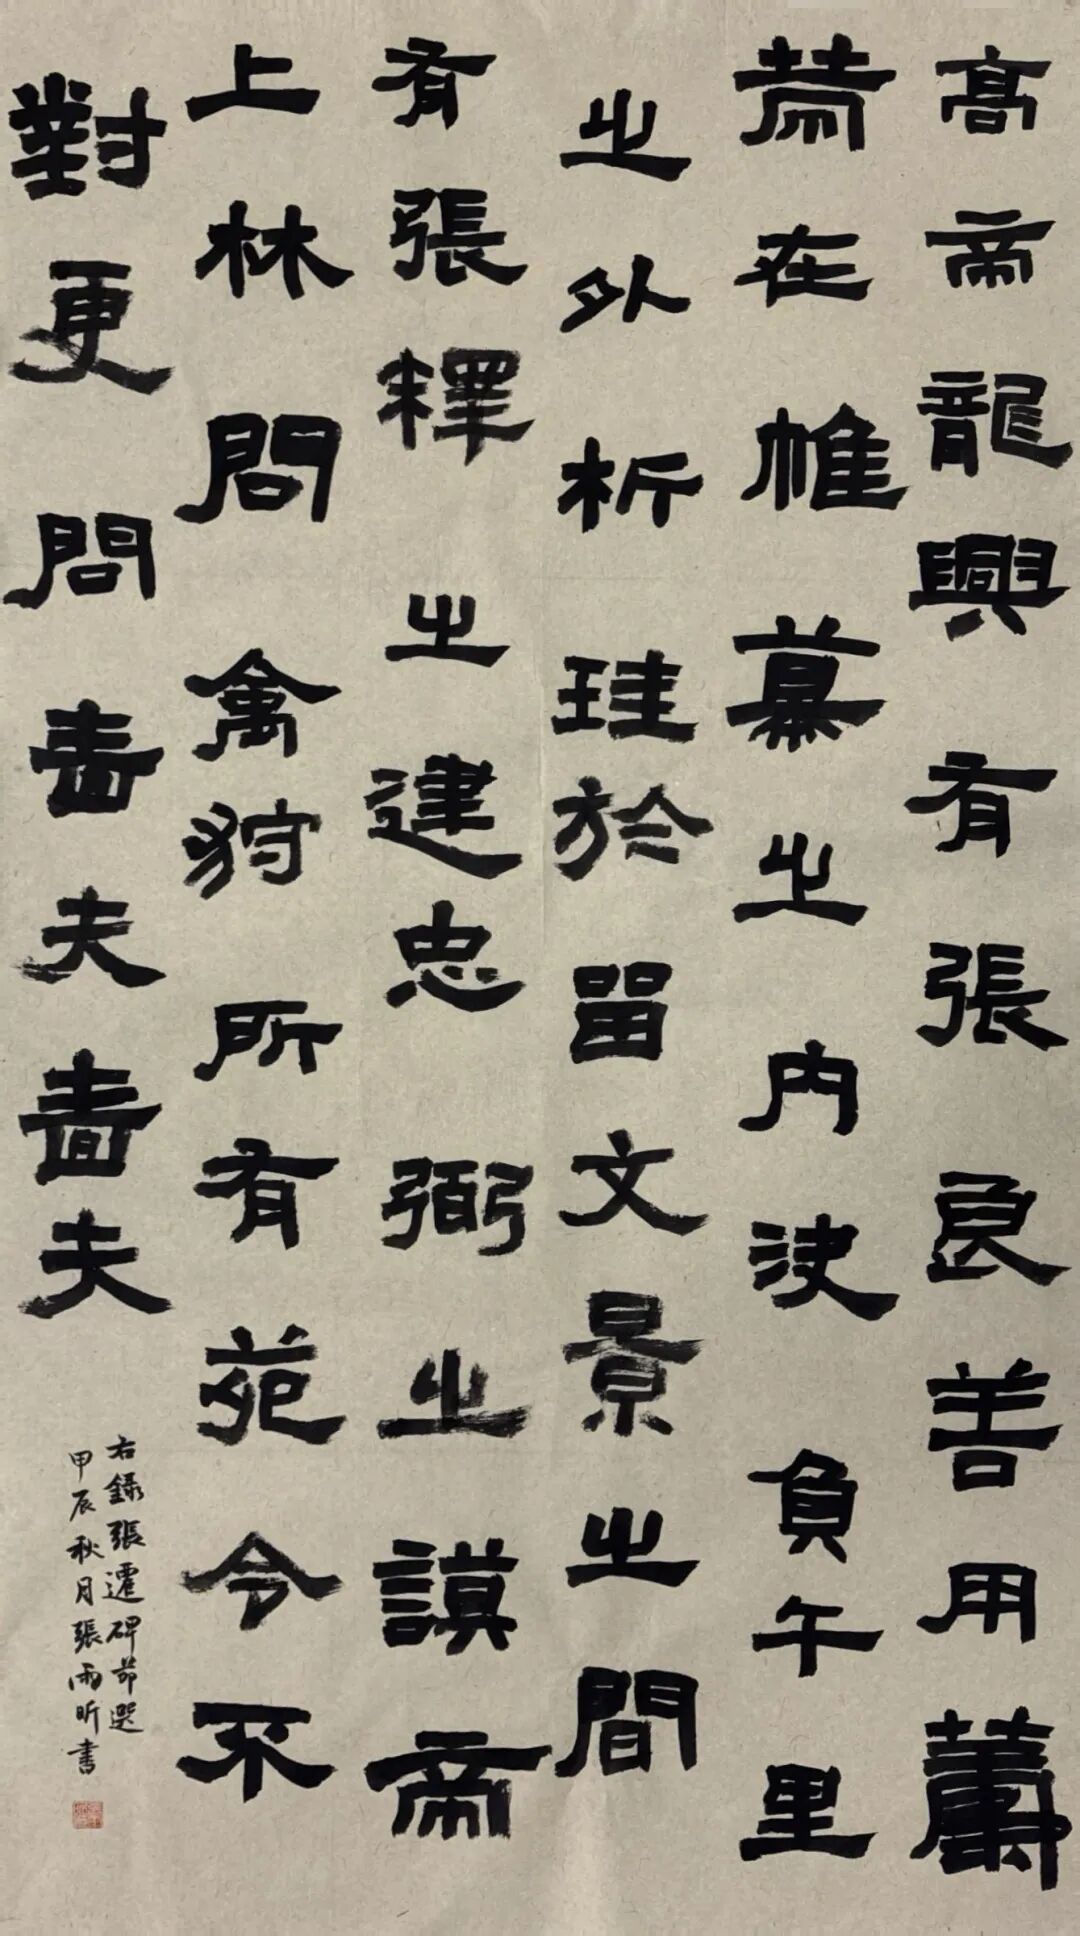 高帝龍興有張良善用蕭
籌在帷幕之内決負午里
之外析珪於留文景之間
有張釋之建忠弼之謨帝
上林問禽狩所有苑令不
對更問嗇夫嗇夫
右錄張遷碑節選
甲辰秋月張雨昕書